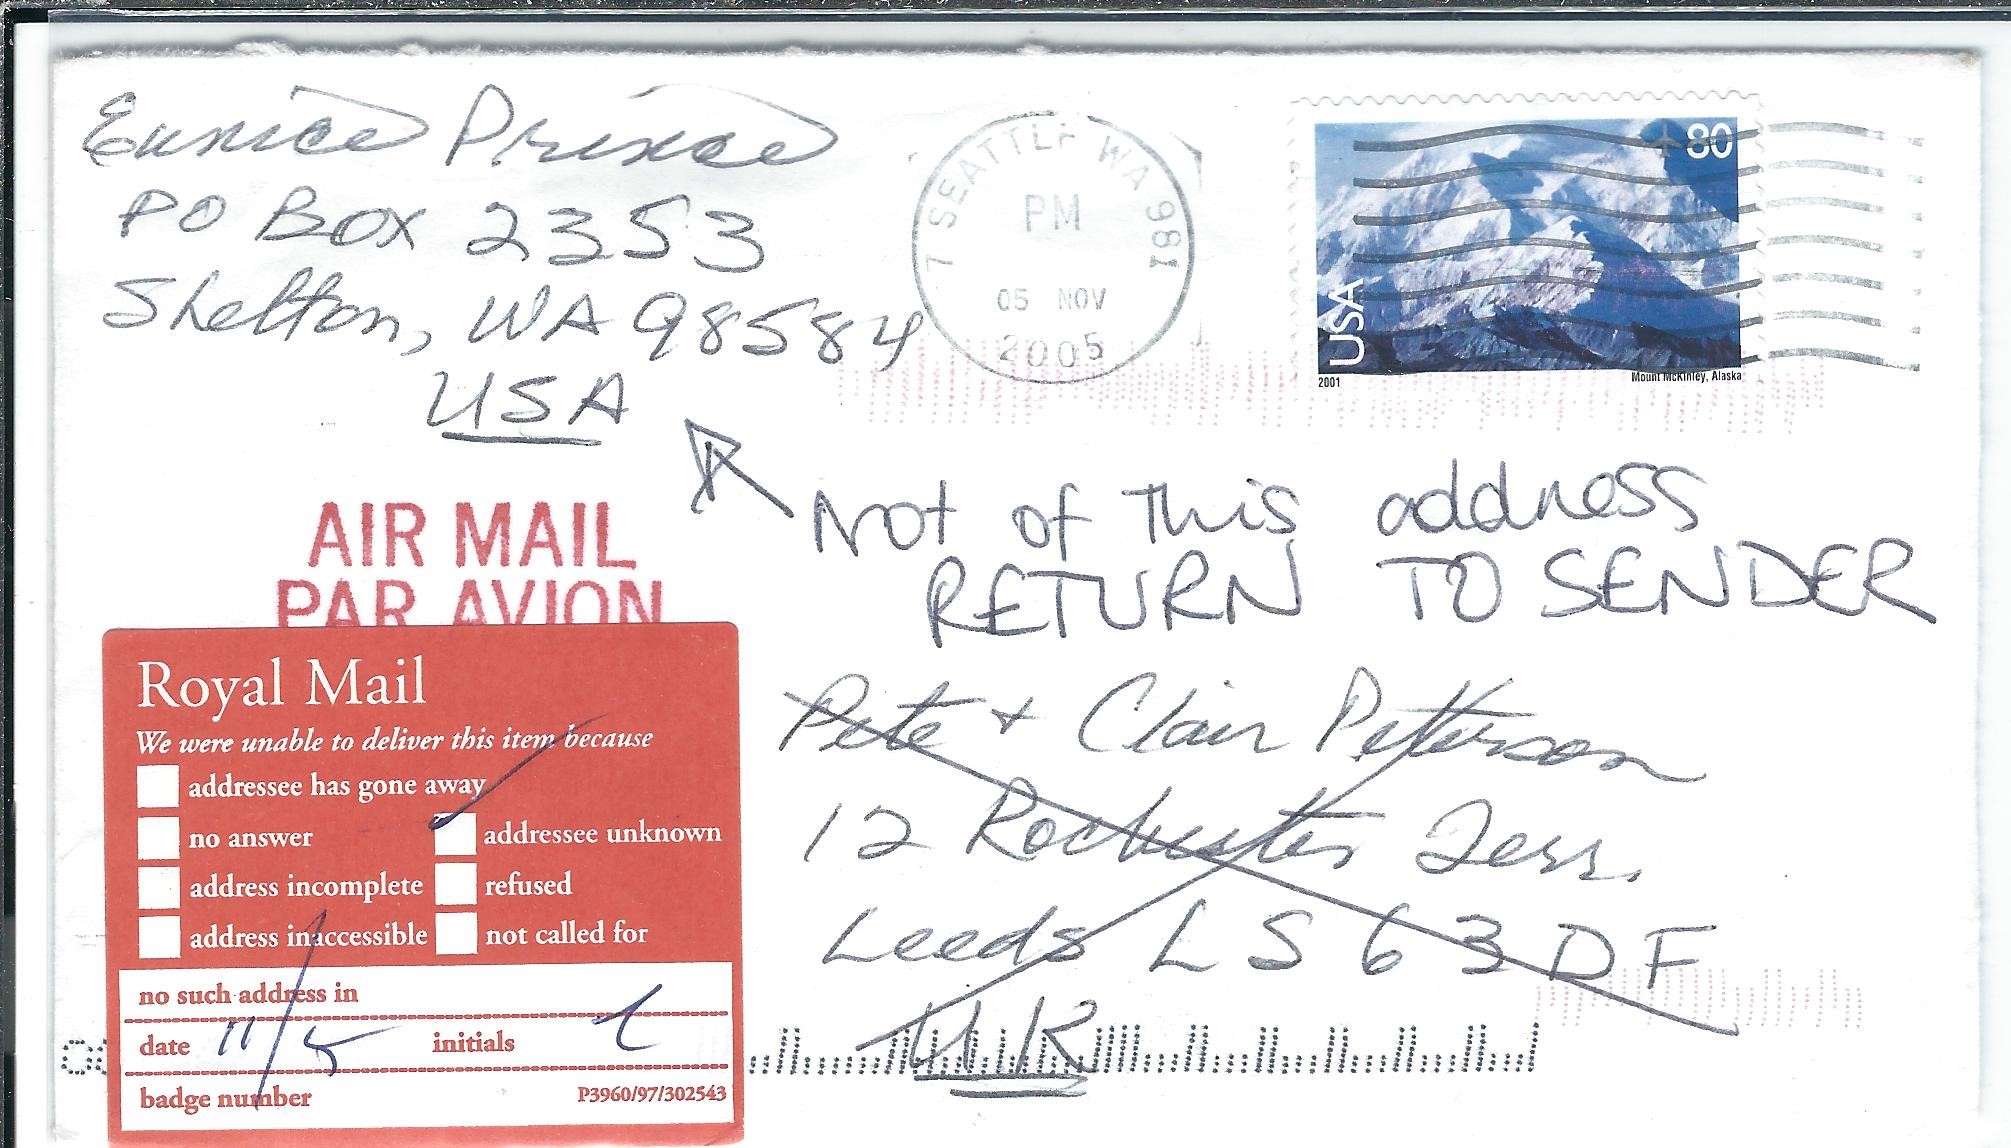 Eunice Prince
PO BOX 2353
Shelton, WA 98584
USA
7 SEATTLE WA 981
PM
05 NOV
2005
80
USA
2001
Mount McKinley, Alaska
AIR MAIL
PAR AVION
Not of This address
RETURN TO SENDER
Pete + Clair Petterson
12 Rochester Terr.
Leeds LS6 3DF
UK
Royal Mail
We were unable to deliver this item because
addressee has gone away
no answer
addressee unknown
address incomplete
refused
address inaccessible
not called for
no such address in
date 11/5
initials
badge number
P3960/97/302543